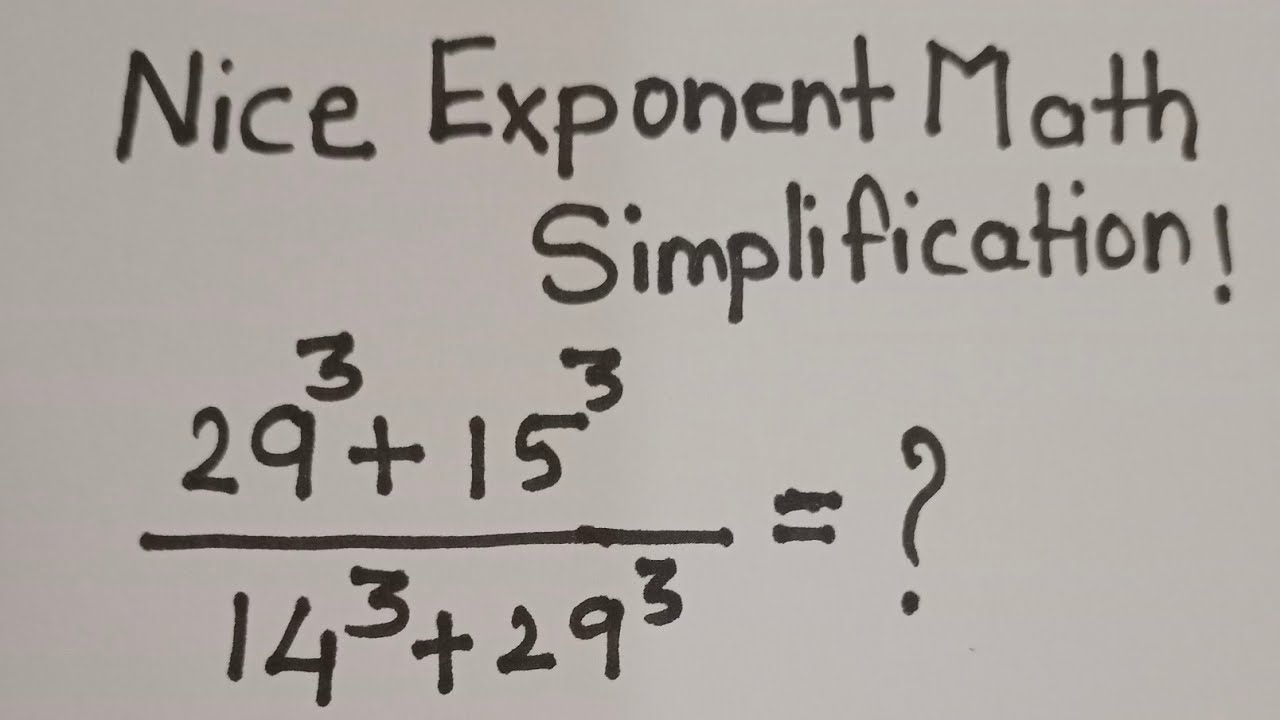 Nice Exponent Math
Simplification!
29³ + 15³
14³ + 29³
= ?